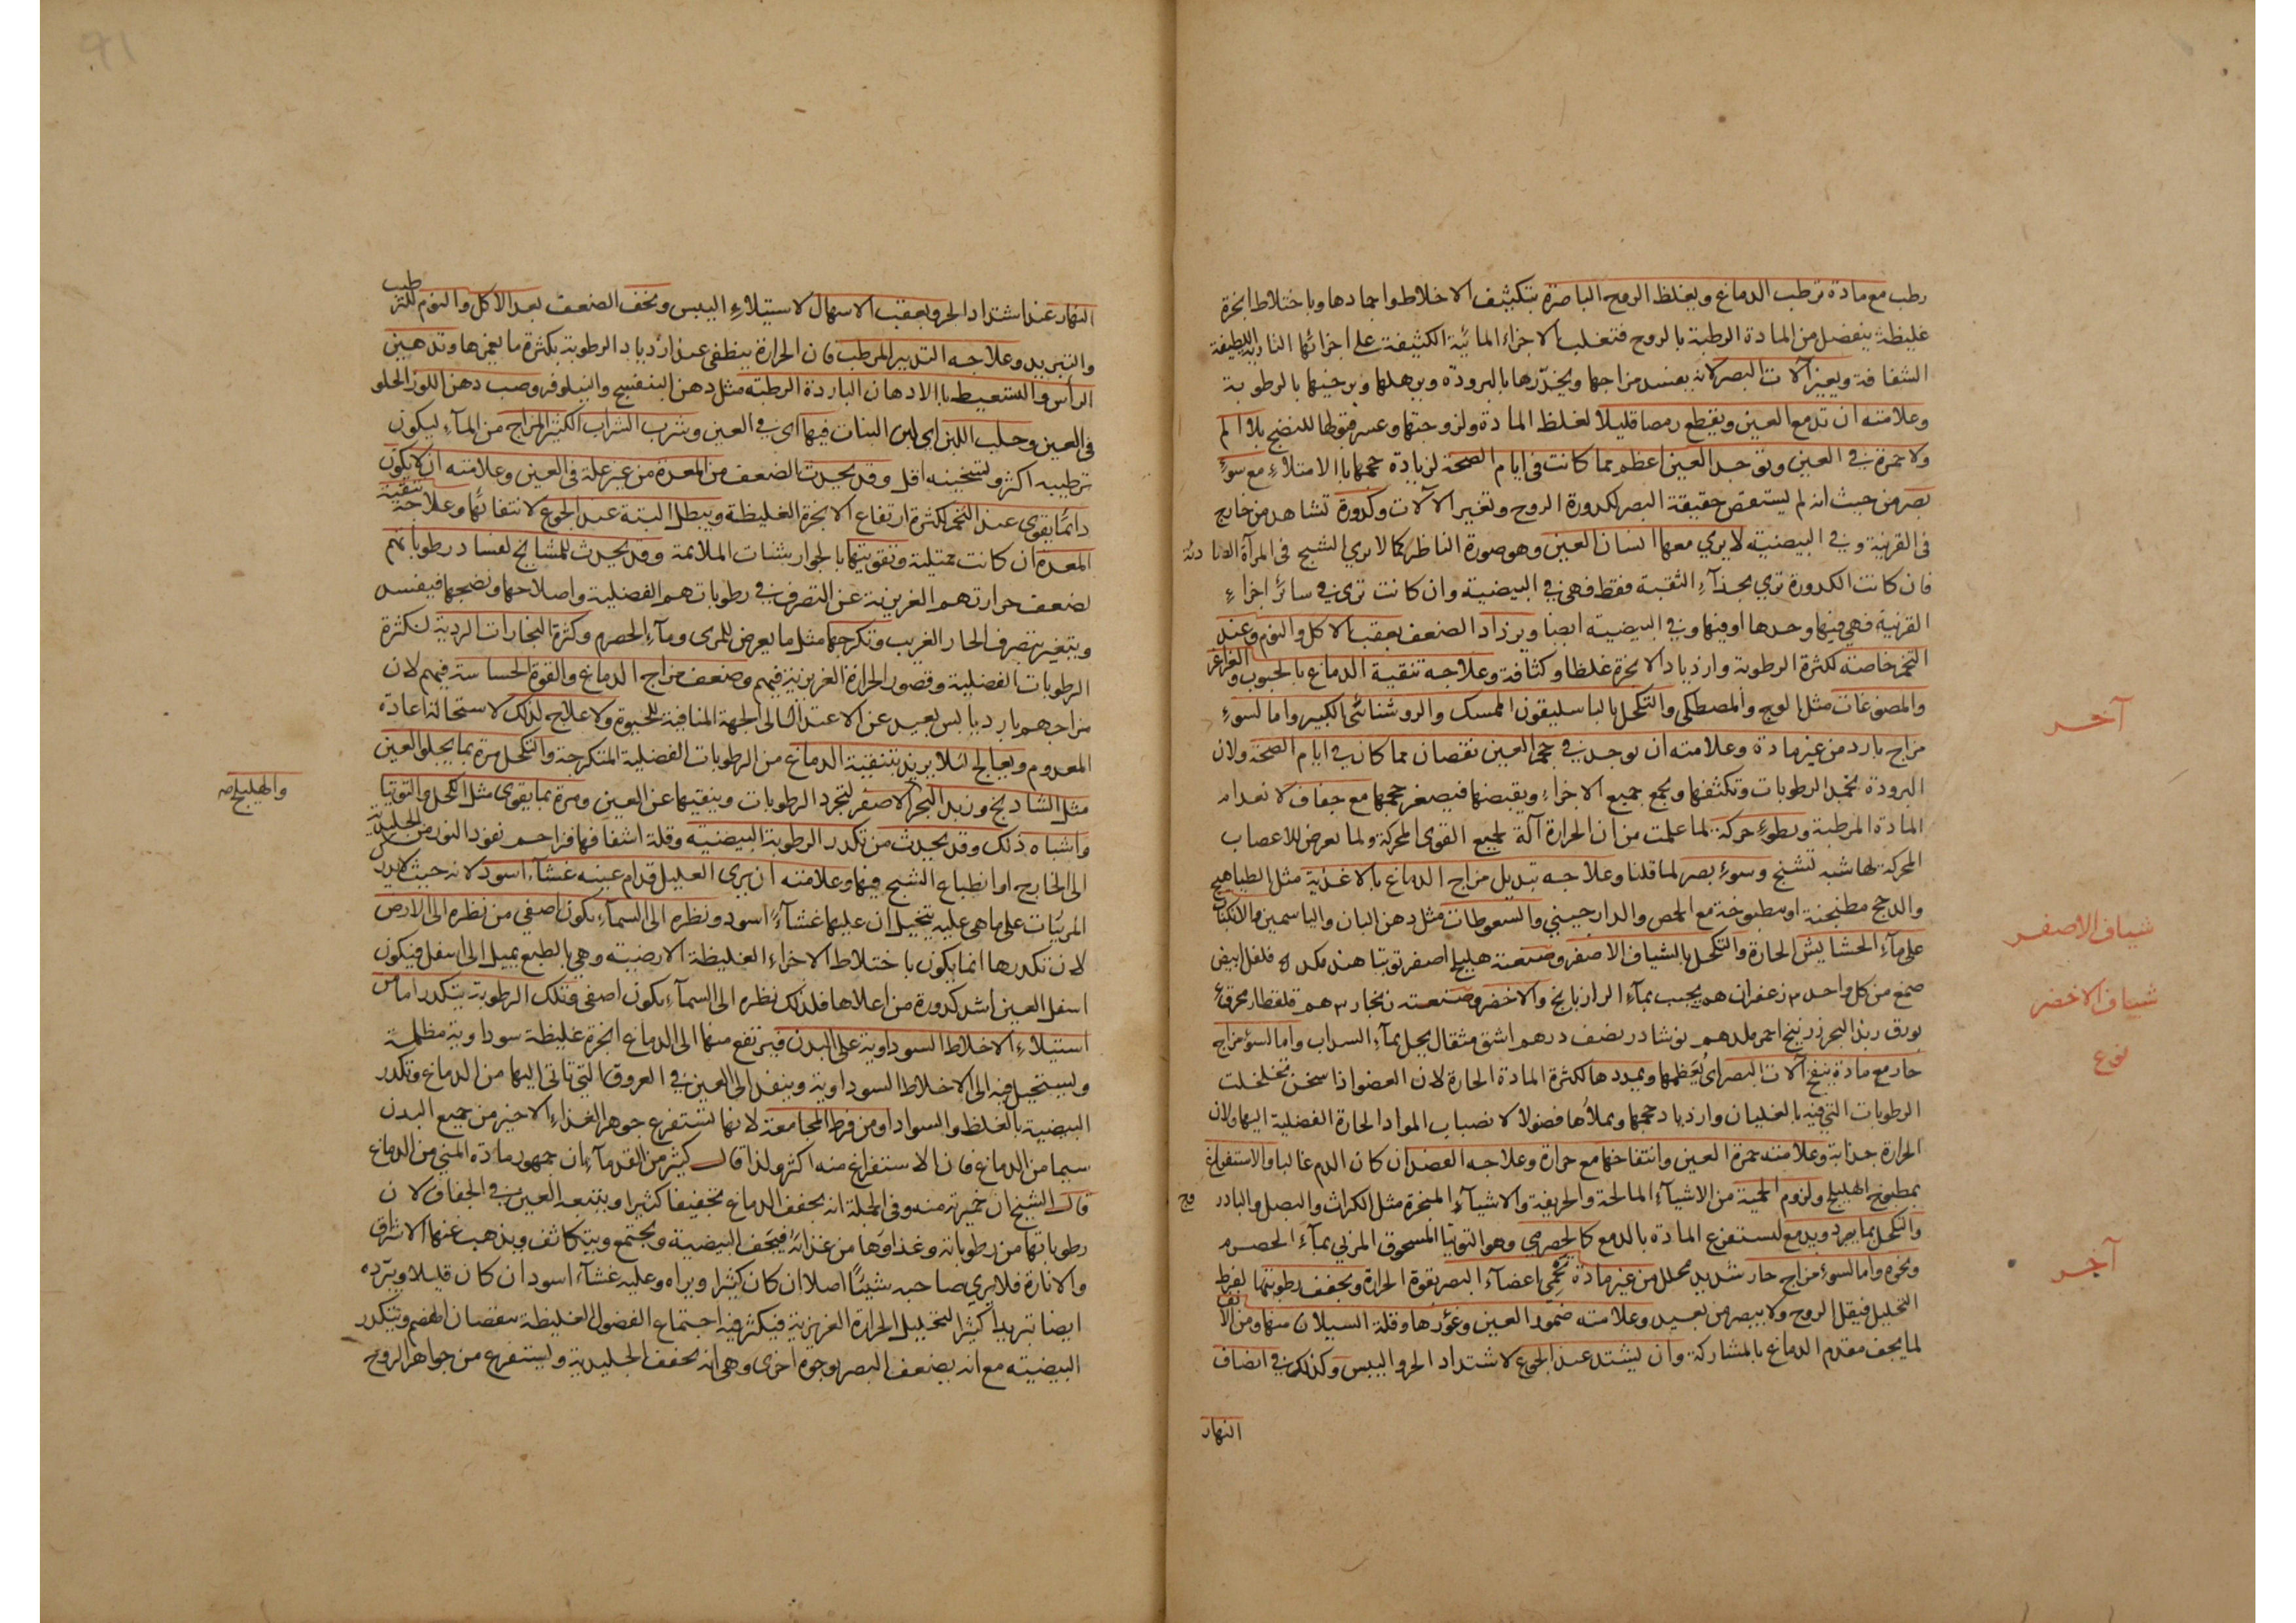 رطب مع مادة ترطب الدماغ ويغلظ الروح الباصرة بتكثيف الاخلاط واجمادها وباختلاط ابخرة
غليظة ينفصل من المادة الرطبة بالروح فتغلب الاجزاء المائية الكثيفة على اجزائها النارية اللطيفة
الشفافة ويغير آلات البصر لانه يفسد مزاجها ويخدرها بالبرودة ويرهلها ويرخيها بالرطوبة
وعلامته ان تدمع العين ويقطع رمصا قليلا لغلظ المادة ولزوجتها وعسر قبولها للنضج بلا الم
ولا حمرة في العين وتوجد العين اعظم مما كانت في ايام الصحة لزيادة حجمها بالامتلاء مع سوء
بصر من حيث انه لم يستقص حقيقة البصر لكدورة الروح وتغير الآلات وكدورة تشاهد من خارج
في القرنية وفي البيضية لا يري معها انسان العين وهو صورة الناظر كما لا يري الشبح في المرآة الصادئة
فان كانت الكدورة تري بحذاء الثقبة فقط فهي في البيضية وان كانت تري في سائر اجزاء
القرنية فهي فيها وحدها او فيها وفي البيضية ايضا ويزداد الضعف بعقب الاكل والنوم وعند
التخم خاصة لكثرة الرطوبة وازدياد الابخرة غلظا وكثافة وعلاجه تنقية الدماغ بالحبوب والغراغر
والمضوغات مثل الوج والمصطكي والتكحل بالباسليقون الممسك والروشنائي الكبير واما لسوء
آخر
مزاج بارد من غير مادة وعلامته ان يوجد في حجم العين نقصان مما كان في ايام الصحة ولان
البرودة تجمد الرطوبات وتكثفها وتجمع جميع الاجزاء ويقبضها فيصغر حجمها مع جفاف لانعدام
المادة المرطبة وبطوء حركة لما علمت من ان الحرارة آلة لجميع القوي المحركة ولما يعرض للاعصاب
المحركة لها شبه تشنج وسوء بصر لما قلنا وعلاجه تبديل مزاج الدماغ بالاغذية مثل الطياهيج
والدجج مطنجنة او مطبوخة مع الحمص والدارجيني والسعوطات مثل دهن البان والياسمين والانكباب
على ماء الحشايش الحارة والتكحل بالشياف الاصفر وصنعته هليلج اصفر توتيا هند مكد فلفل ابيض
شياف الاصفر
صمغ من كل واحد ٣ زعفران هم يجبب بماء الرازيانج والاخضر وصنعته زنجار ٣ هم قلقطار محرق
شياف الاخضر
بورق زبد البحر زرنيخ احمر ملدهم نوشادر نصف درهم اشق مثقال يحل بماء السداب واما لسوء مزاج
نوع
حار مع مادة ينفخ آلات البصر اى يعظمها ويمددها لكثرة المادة الحارة لان العضو اذا سخن تخلخلت
الرطوبات التي فيه بالغليان وازدياد حجمها ويملأها فضولا لانصباب المواد الحارة الفضلية اليها ولان
الحرارة جذابة وعلامته حمرة العين وانتفاخها مع حرارة وعلاجه الفصد ان كان الدم غالبا والاستفراغ
بمطبوخ الهليلج ولزوم الحمية من الاشياء المالحة والحريفة والاشياء المبخرة مثل الكراث والبصل والبادروج
والتكحل بما يبرد ويدمع ليستفرغ المادة بالدمع كالحصرمي وهو التوتيا المسحوق المربي بماء الحصرم
ونحوه واما لسوء مزاج حار شديد محلل من غير مادة تحمي اعضاء البصر بقوة الحرارة ويجفف رطوبتها لفرط
آخر
التحليل فيقل الروح ولا يبصر من بعيد وعلامته ضمور العين وغؤرها وقلة السيلان منها ومن الانف
لما يجف مقدم الدماغ بالمشاركة وان يشتد عند الجوع لاشتداد الحر واليبس وكذلك في انصاف
النهار
النهار عند اشتداد الحر وبعقب الاسهال لاستيلاء اليبس ويخف الضعف بعد الاكل والنوم للترطيب
والتبريد وعلاجه التدبير المرطب فان الحرارة ينطفى عند ازدياد الرطوبة بكثرة ما يغمرها وتدهين
الرأس والتسعيط بالادهان الباردة الرطبة مثل دهن البنفسج والنيلوفر وصب دهن اللوز الحلو
في العين وحلب اللبن اى لبن البنات فيها اى في العين وشرب الشراب الكثير المزاج من الماء ليكون
ترطيبه اكثر وتسخينه اقل وقد يحدث الضعف من المعدة من غير علة في العين وعلامته ان لا يكون
دائما يقوى عند التخم لكثرة ارتفاع الابخرة الغليظة ويبطل البتة عند الجوع لانتفائها وعلاجه تنقية
المعدة ان كانت ممتلية وتقويتها بالجوارشنات الملائمة وقد يحدث للمشايخ لفساد رطوباتهم
لضعف حرارتهم الغريزية عن التصرف في رطوباتهم الفضلية واصلاحها ونضجها فيفسد
ويتغير بتصرف الحار الغريب وتكرجها مثل ما يعرض للمرى وماء الحصرم وكثرة البخارات الردية لكثرة
الرطوبات الفضلية وقصور الحرارة الغريزية فيهم وضعف مزاج الدماغ والقوة الحساسة فيهم لان
مزاجهم بارد يابس بعيد عن الاعتدال الى الجهة المنافية للحيوة ولا علاج لذلك لاستحالة اعادة
المعدوم ويعالج لئلا يزيد بتنقية الدماغ من الرطوبات الفضلية المتكرجة والتكحل مرة بما يجلو العين
مثل الشادنج وزبد البحر الاصفر لتجرد الرطوبات وينقيها عن العين ومرة بما يقوى مثل الكحل والتوتيا
والهليلج صح
واشباه ذلك وقد يحدث من تكدر الرطوبة البيضية وقلة اشفافها فزاحم نفوذ النور من الجليدية
الى الخارج او انطباع الشبح فيها وعلامته ان يري العليل قدام عينه غشاء اسود لانه حيث لا يدرك
المرئيات على ما هى عليه يتخيل ان عليها غشاء اسود ونظره الى السماء يكون اصفي من نظره الى الارض
لان تكدرها انما يكون باختلاط الاجزاء الغليظة الارضية وهي بالطبع يميل الى اسفل فيكون
اسفل العين اشد كدورة من اعلاها فلذلك نظره الى السماء يكون اصفى وتلك الرطوبة يتكدر اما من
استيلاء الاخلاط السوداوية على البدن فيرتفع منها الى الدماغ ابخرة غليظة سوداوية مظلمة
ويستحيل فيه الى الاخلاط السوداوية وينفذ الى العين في العروق التي تاتى اليها من الدماغ وتكدر
البيضية بالغلظ والسواد او من فرط المجامعة لانها تستفرغ جوهر الغذاء الاخير من جميع البدن
سيما من الدماغ فان الاستفراغ منه اكثر ولذا قال كثير من القدماء ان جمهور مادة المني من الدماغ
قال الشيخ ان خميرته منه وفى الجملة انه يجفف الدماغ تجفيفا كثيرا ويتبعه العين في الجفاف لان
رطوباتها من رطوباته وغذاؤها من غذائه فيجف البيضية ويجتمع ويتكاثف ويذهب عنها الاشراق
والانارة فلا يري صاحبه شيئا اصلا ان كان كثيرا ويراه وعليه غشاء اسود ان كان قليلا ويبرده
ايضا تبريدا كثيرا لتحليل الحرارة الغريزية فيكثر فيه اجتماع الفضول الغليظة بنقصان الهضم ويتكدر
البيضية مع انه يضعف البصر بوجوه اخرى وهى انه يجفف الجليدية ويستفرغ من جواهر الروح